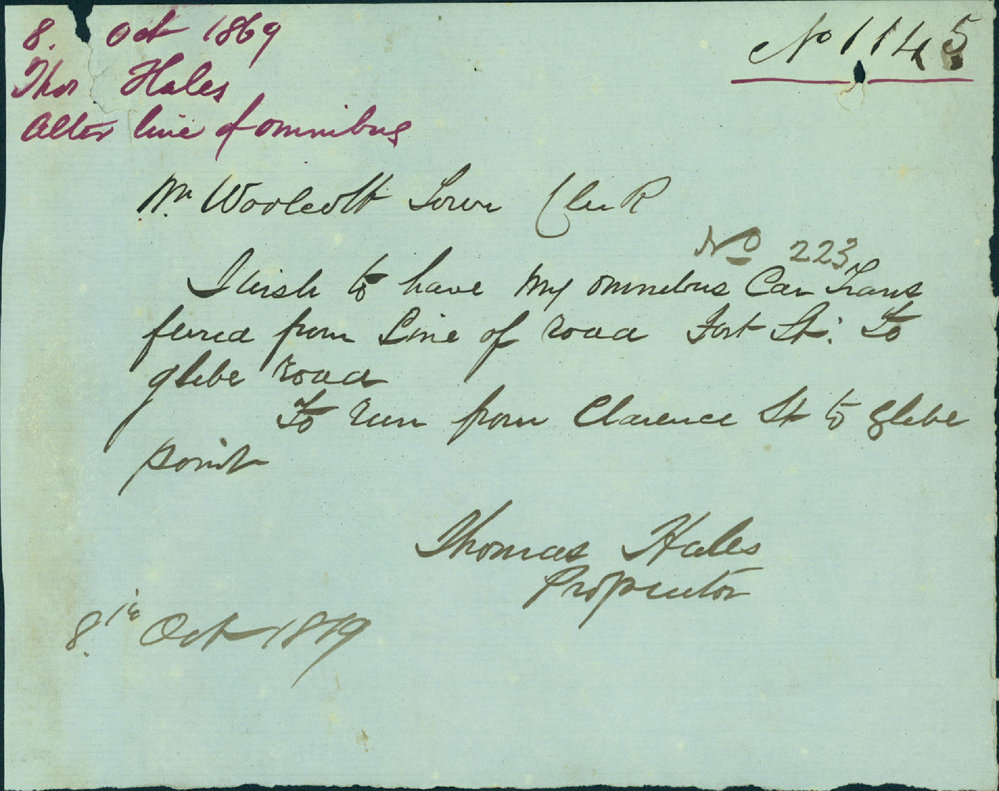 8. Oct 1869
Thos Hales
Alter line of omnibus
No 1145
Mr Woolcott Town Clerk
No 223
I wish to have my omnibus Car Trans
ferred from Line of road Fort St. To
glebe road
To run from Clarence St to glebe
point
Thomas Hales
Proprietor
8th Oct 1869